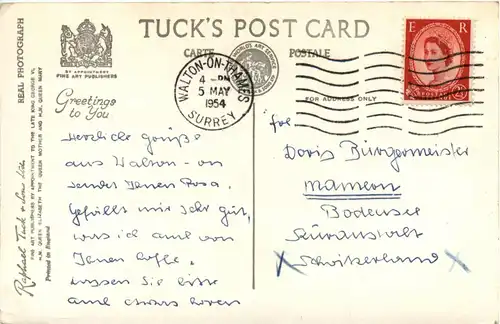 TUCK'S POST CARD
CARTE POSTALE
REAL PHOTOGRAPH
BY APPOINTMENT
FINE ART PUBLISHERS
Greetings
to You
FOR ADDRESS ONLY
WALTON-ON-THAMES
4 - PM
5 MAY
1954
SURREY
E R
POSTAGE
Raphael Tuck & Sons Ltd.
FINE ART PUBLISHERS BY APPOINTMENT TO THE LATE KING GEORGE VI,
H.M. QUEEN ELIZABETH THE QUEEN MOTHER AND H.M. QUEEN MARY
Printed in England
Herzliche Grüße
aus Walton - on
sendet Ihnen Rosa.
Gefällt mir sehr gut,
was ich auch von
Ihnen hoffe.
Lassen Sie bitte
auch etwas hören
Doris Bürgermeister
Bodensee
Schwitzerland